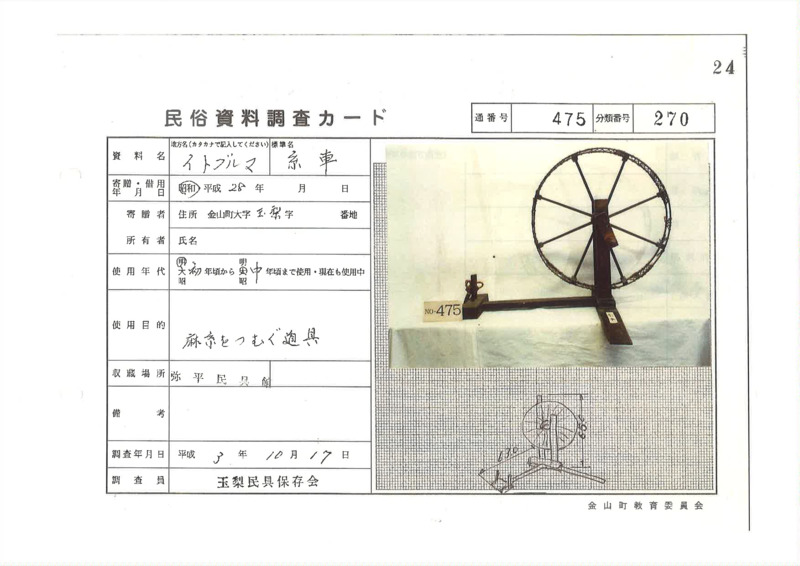 24
民俗資料調査カード
通番号 475 分類番号 270
資料名 地方名(カタカナで記入してください) イトグルマ 標準名 糸車
寄贈・借用年月日 昭和 平成 28 年 月 日
寄贈者 住所 金山町大字 玉梨 字 番地
所有者 氏名
使用年代 明 大 昭 初 年頃から 明 大 昭 中 年頃まで使用・現在も使用中
使用目的 麻糸をつむぐ道具
収蔵場所 弥平民具館
備考
調査年月日 平成 3 年 10 月 17 日
調査員 玉梨民具保存会
NO-475
680
630
金山町教育委員会